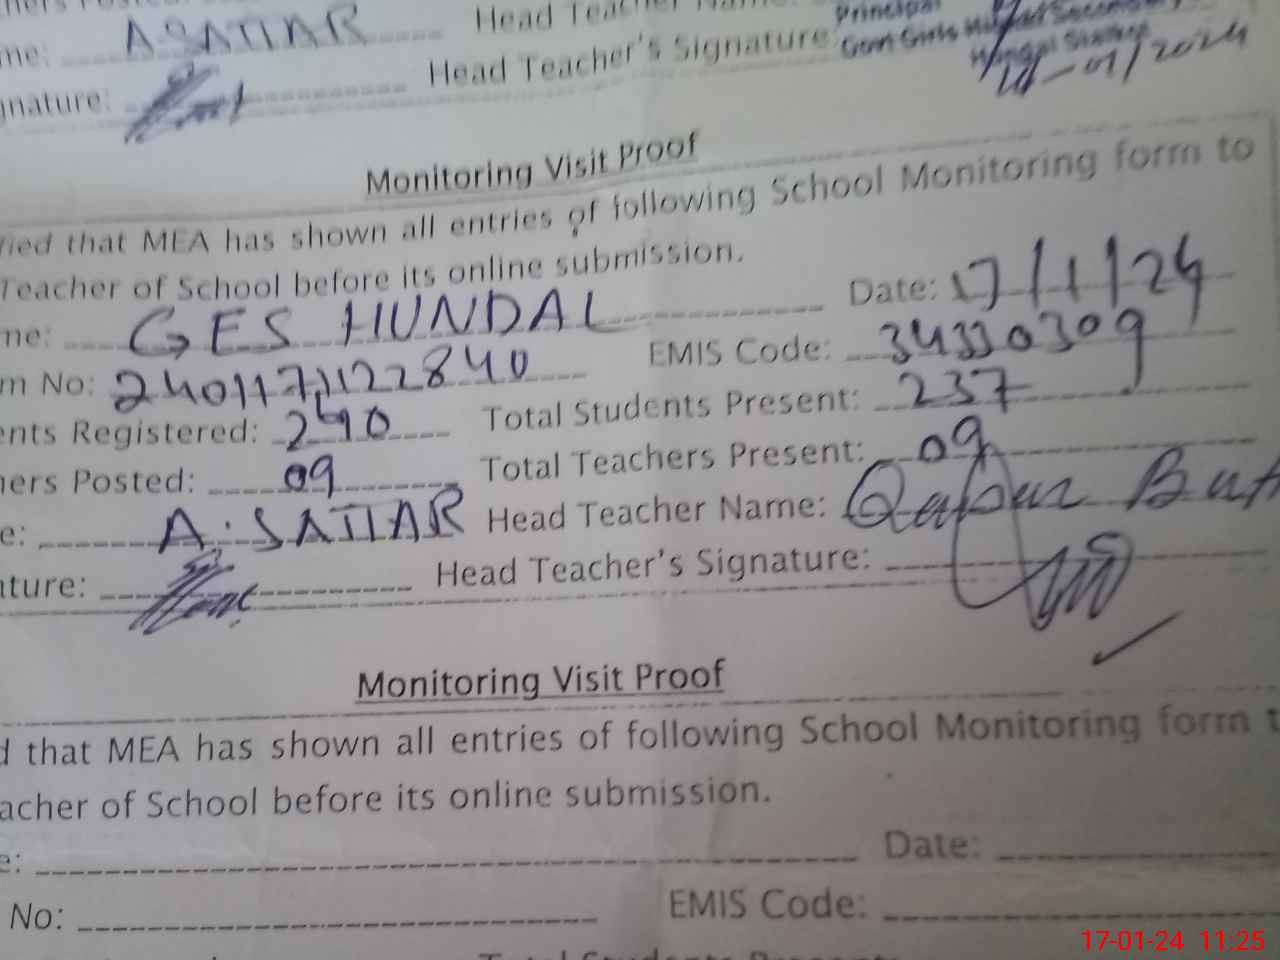 me: A.SATTAR Head Teacher Name: Principal
Head Teacher's Signature: Govt Girls
gnature: 01/2024
Monitoring Visit Proof
fied that MEA has shown all entries of following School Monitoring form to
Teacher of School before its online submission.
me: GES HUNDAL Date: 17/1/24
m No: 240117112840 EMIS Code: 34330309
ents Registered: 240 Total Students Present: 237
ers Posted: 09 Total Teachers Present: 09
e: A.SATTAR Head Teacher Name: Butt
ature: Head Teacher's Signature:
Monitoring Visit Proof
d that MEA has shown all entries of following School Monitoring form t
acher of School before its online submission.
e: Date:
No: EMIS Code:
17-01-24 11:25